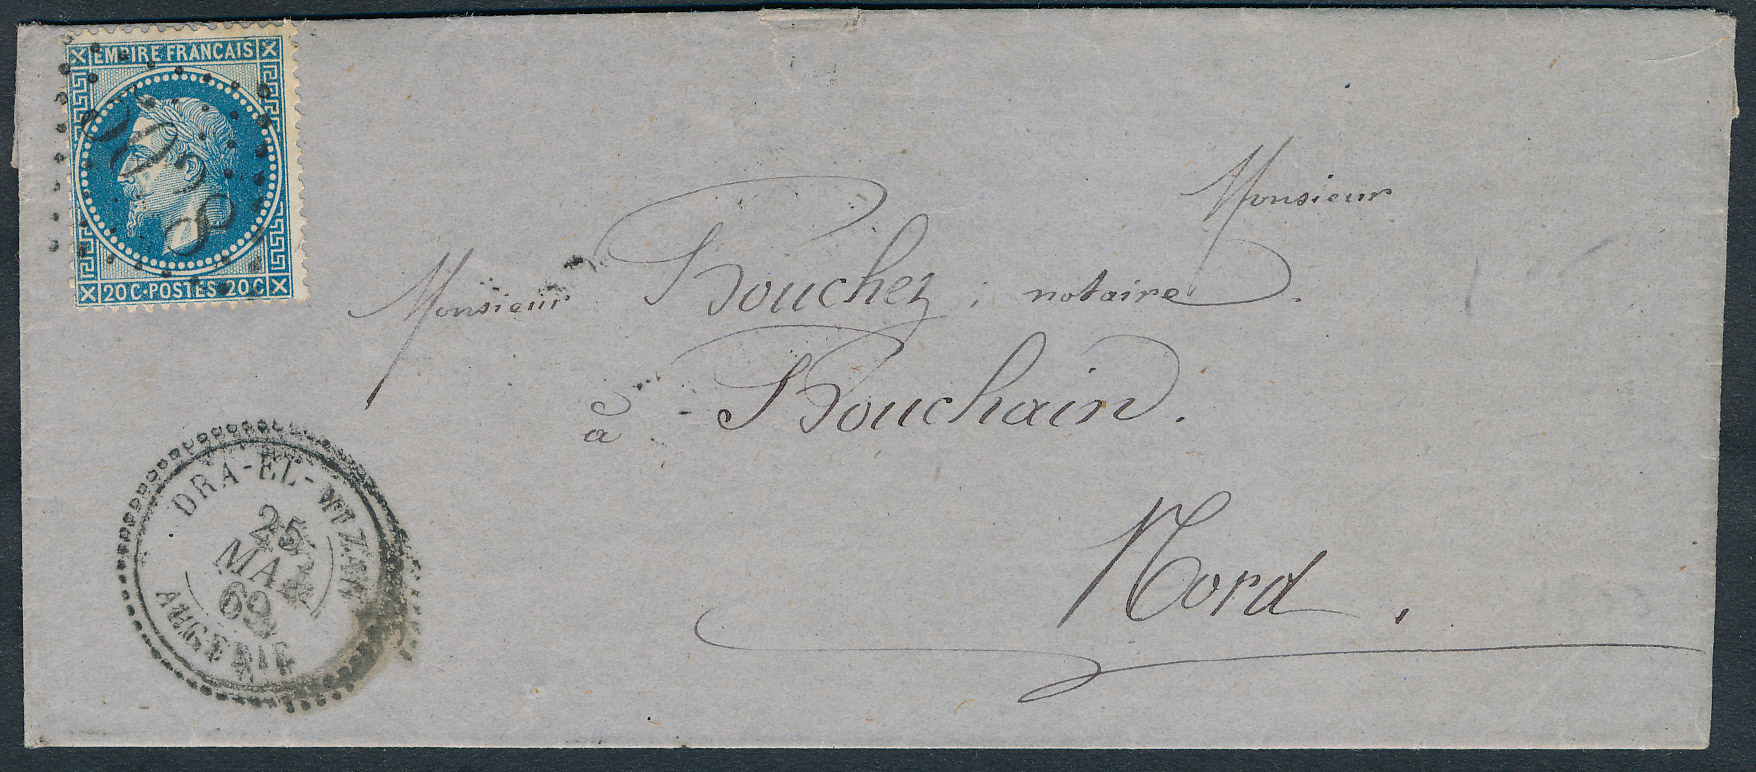 EMPIRE FRANCAIS
20C·POSTES·20C
Monsieur
Monsieur Bouchez, notaire.
à Bouchain.
Nord.
DRA-EL-MIZAN
25
MAI
69
ALGERIE